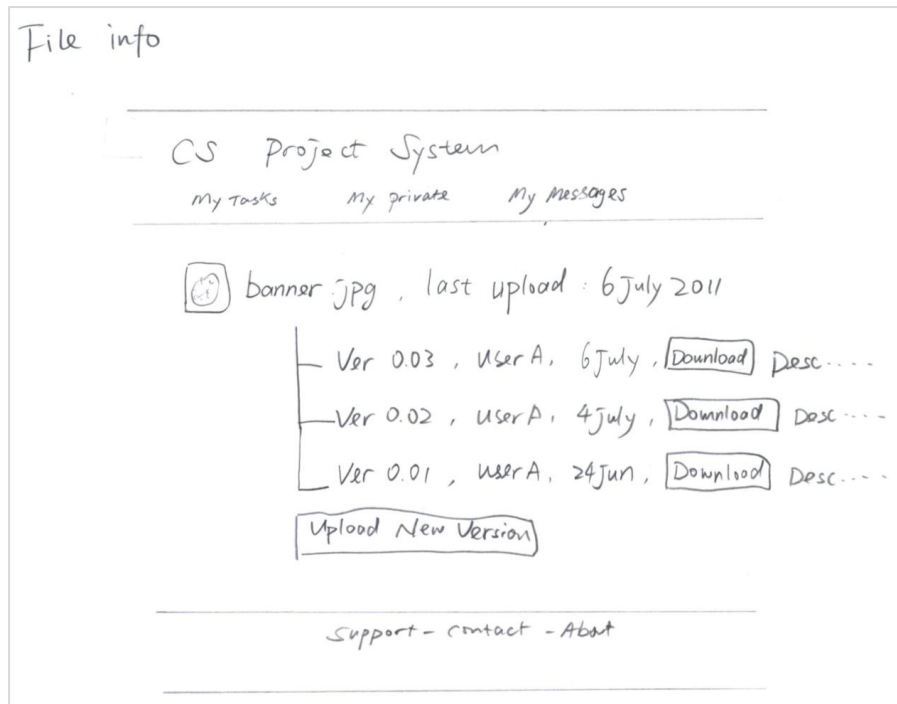 File info
CS Project System
My Tasks My private My Messages
banner.jpg , last upload : 6 July 2011
Ver 0.03 , User A, 6 July , Download Desc.....
Ver 0.02 , User A, 4 July , Download Desc.....
Ver 0.01 , User A, 24 Jun, Download Desc.....
Upload New Version
Support - contact - About